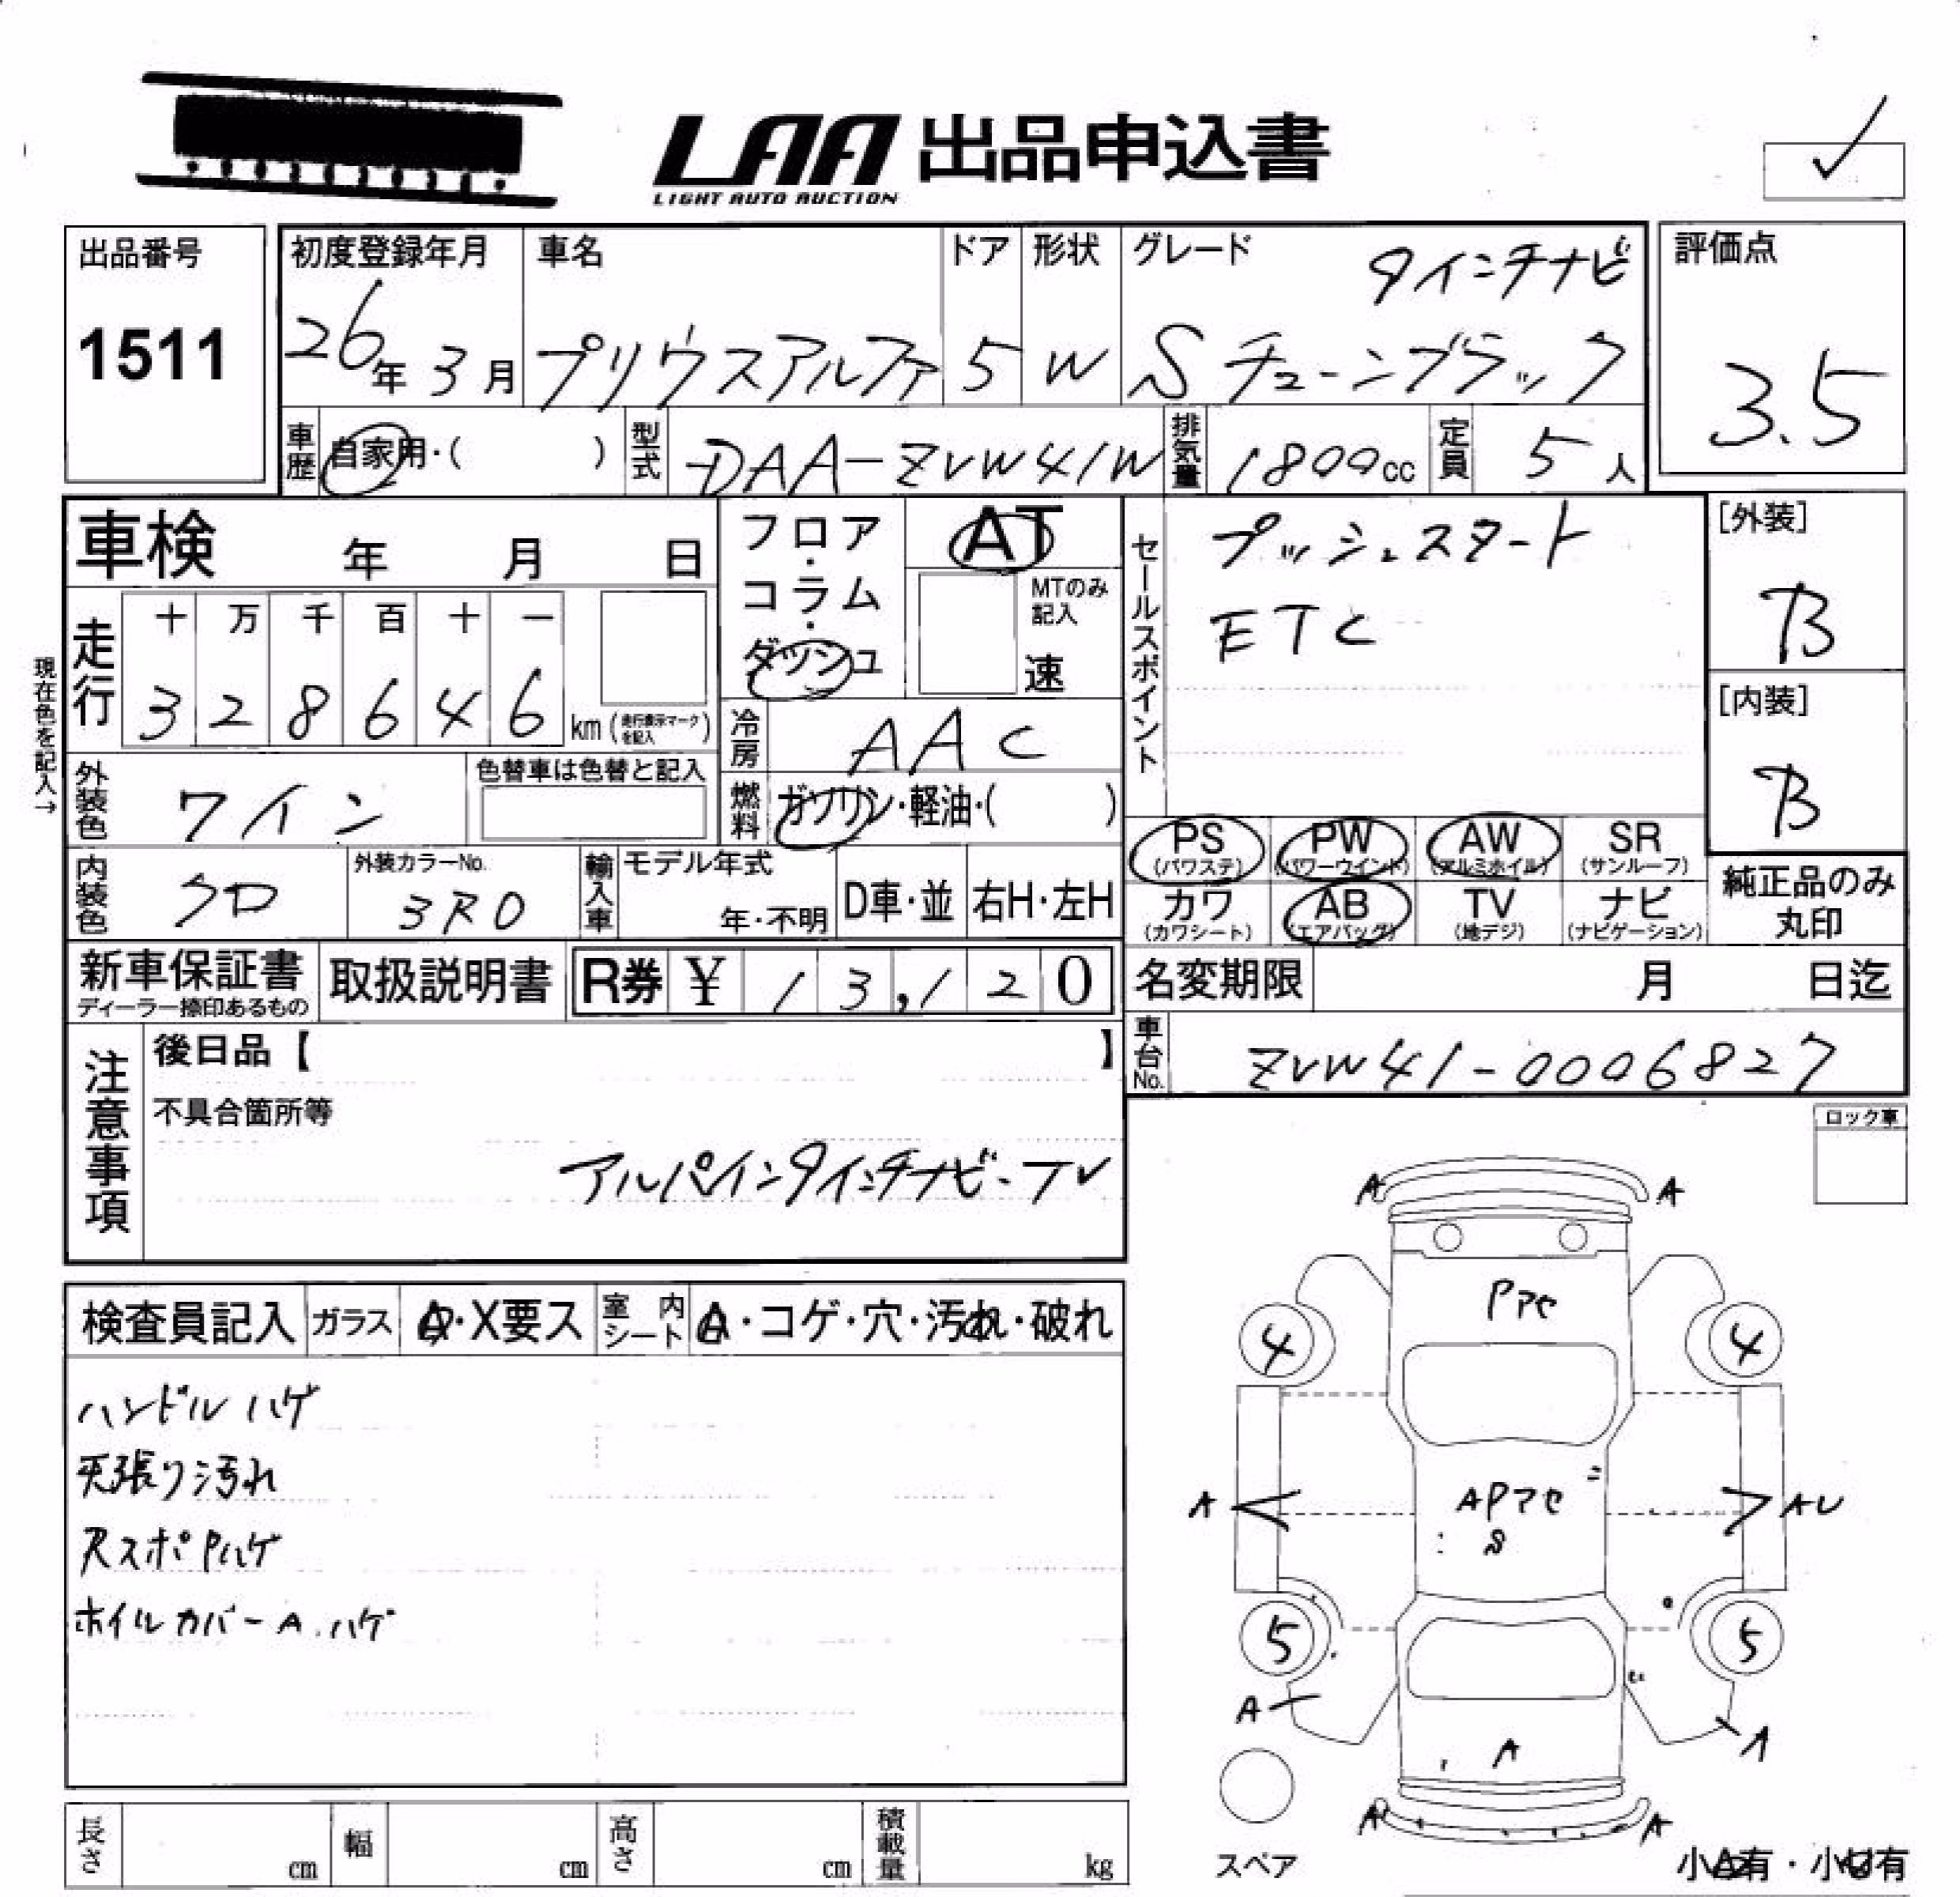 LAA 出品申込書
LIGHT AUTO AUCTION
出品番号
1511
初度登録年月
26年 3月
車名
プリウスアルファ
ドア
5
形状
W
グレード
9インチナビ
Sチューンブラック
評価点
3.5
車歴
自家用・( )
型式
DAA-ZVW41W
排気量
1800cc
定員
5人
車検 年 月 日
現在色を記入→
走行
十 万 千 百 十 一
3 2 8 6 4 6 km (走行表示マークを記入)
フロア・コラム・ダッシュ
AT
MTのみ記入
速
冷房
AAC
燃料
ガソリン・軽油・( )
外装色
ワイン
色替車は色替と記入
内装色
クロ
外装カラーNo.
3R0
輸入車
モデル年式
年・不明
D車・並
右H・左H
セールスポイント
プッシュスタート
ETC
[外装]
B
[内装]
B
PS (パワステ)
PW (パワーウインド)
AW (アルミホイル)
SR (サンルーフ)
カワ (カワシート)
AB (エアバッグ)
TV (地デジ)
ナビ (ナビゲーション)
純正品のみ
丸印
新車保証書
ディーラー捺印あるもの
取扱説明書
R券 ¥ 13,120
名変期限 月 日迄
車台No.
ZVW41-0006827
注意事項
後日品【 】
不具合箇所等
アルパイン9インチナビ・TV
ロック車
検査員記入
ガラス
A・X要ス
室内シート
A・コゲ・穴・汚れ・破れ
ハンドルハゲ
天張り汚れ
RスポPハゲ
ホイルカバーA.ハゲ
A A
Pアセ
4 4
A APアセ AU
S
5 5
A A
A
A A
スペア
小A有・小U有
長さ cm
幅 cm
高さ cm
積載量 kg